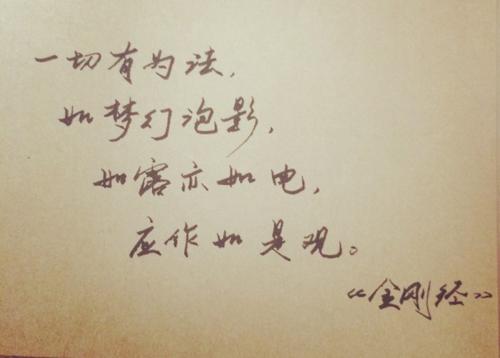 一切有为法，
如梦幻泡影，
如露亦如电，
应作如是观。
《金刚经》